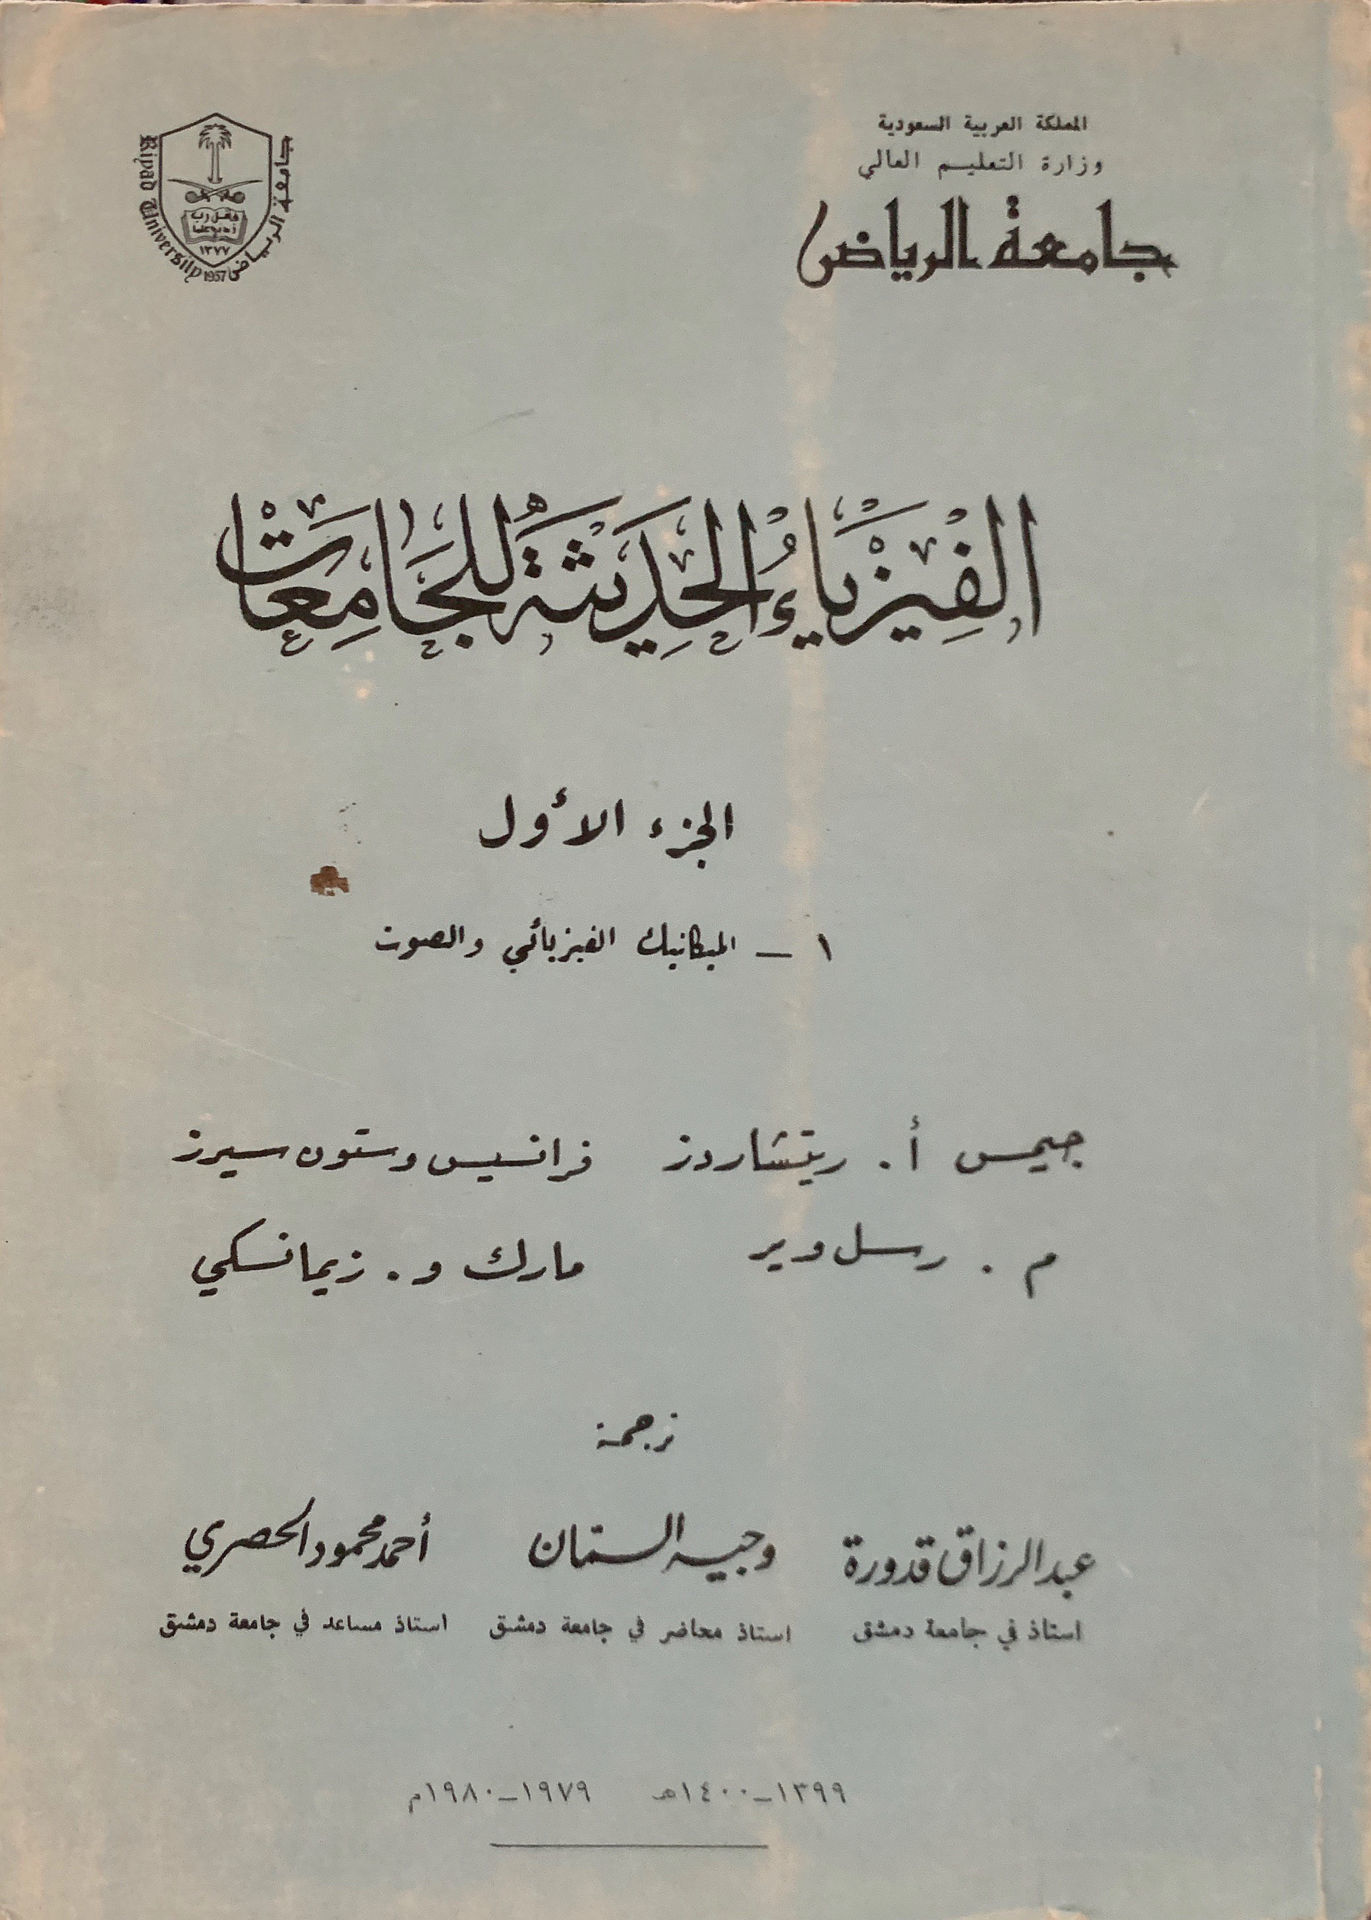 المملكة العربية السعودية
وزارة التعليم العالي
جامعة الرياض
جامعة الرياض
Riyad University
وقل رب
زدني علما
١٣٧٧
1957
الفِيزْيَاءُ الحَدِيثَةُ لِلجَامِعَاتْ
الجزء الأول
١ – الميكانيك الفيزيائي والصوت
جيمس أ. ريتشاردز فرانسيس وستون سيرز
م. رسل وير مارك و. زيمانسكي
ترجمة
عبد الرزاق قدورة وجيه السمان أحمد محمود الحصري
استاذ في جامعة دمشق استاذ محاضر في جامعة دمشق استاذ مساعد في جامعة دمشق
١٣٩٩–١٤٠٠هـ ١٩٧٩–١٩٨٠م